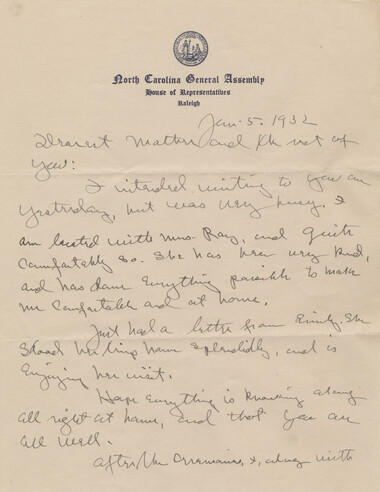 North Carolina General Assembly
House of Representatives
Raleigh
Jan. 5. 1932
Dearest Mother and the rest of
you:
I intended writing to you on
yesterday, but was very busy. I
am located with Mrs. Ray, and quite
comfortably so. She has been very kind,
and has done everything possible to make
me comfortable and at home.
Just had a letter from Emily. She
stood her trip home splendidly, and is
enjoying her visit.
Hope everything is moving along
all right at home, and that you are
all well.
After the I, along with